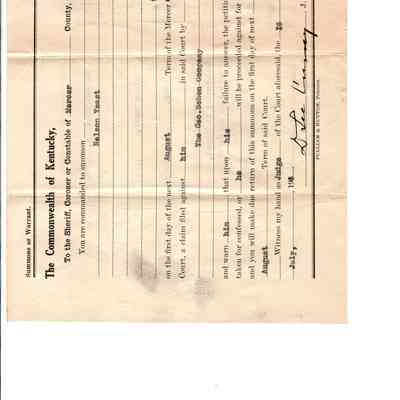 Summons or Warrant.
The Commonwealth of Kentucky,
To the Sheriff, Coroner or Constable of Mercer County,
You are commanded to summon
Nelson Yeast
on the first day of the next August Term of the Mercer
Court, a claim filed against him in said Court by
The Geo. Bohon Company
and warn him failure to answer, the petiti
taken for confessed, or he will be proceeded against for
and you will make due return of this summons on the first day of next
August Term of said Court.
Witness my hand as Judge of the Court aforesaid, the 26
July, 190 J.
PULLIAM & HUTTON, Printers.